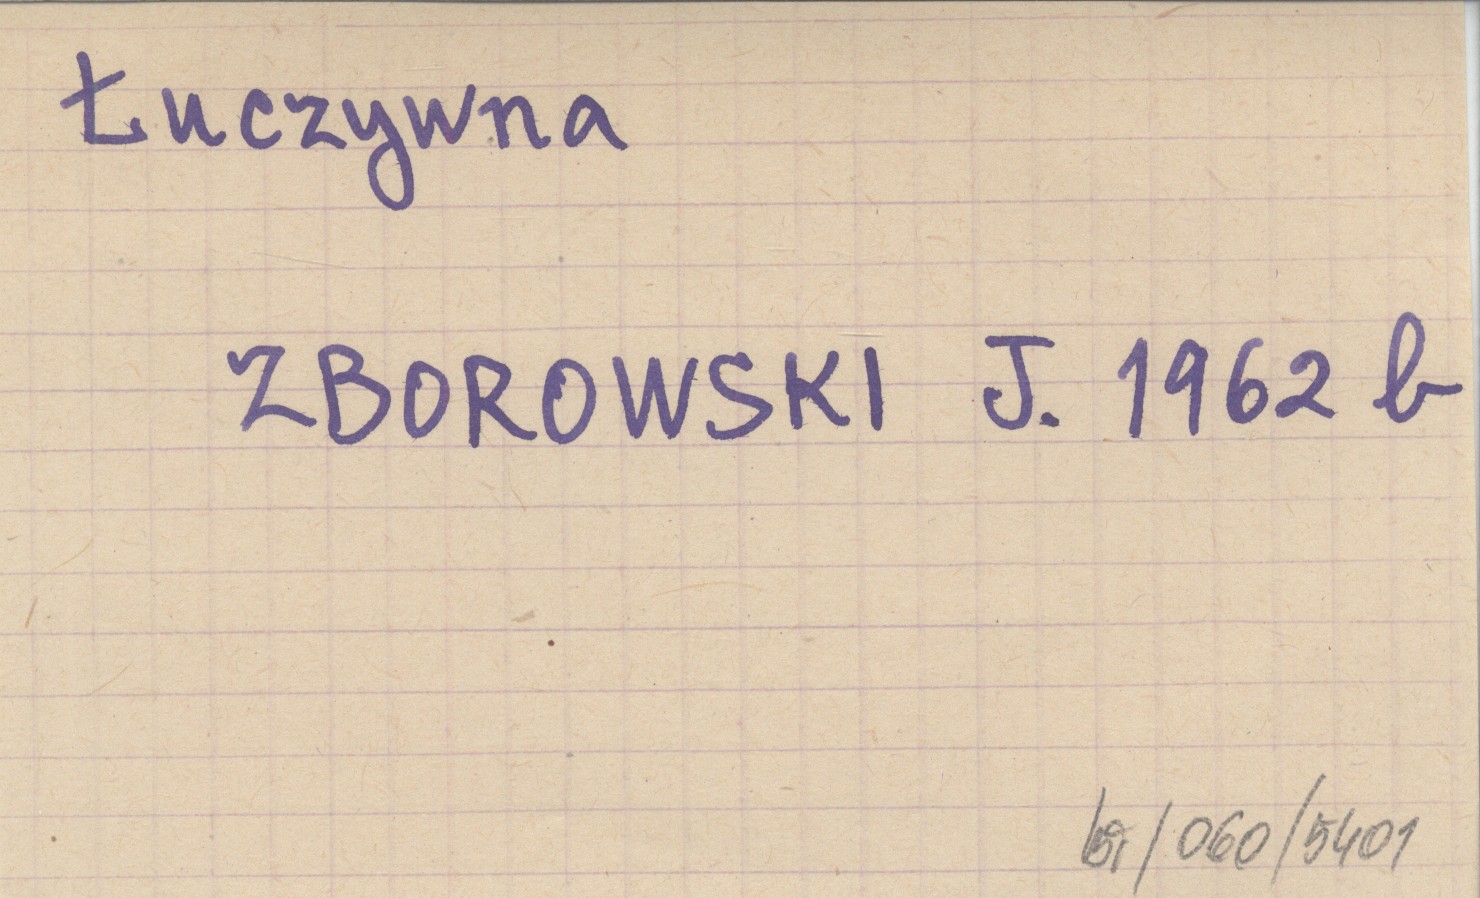 Łuczywna
ZBOROWSKI J. 1962 b
/060/5401